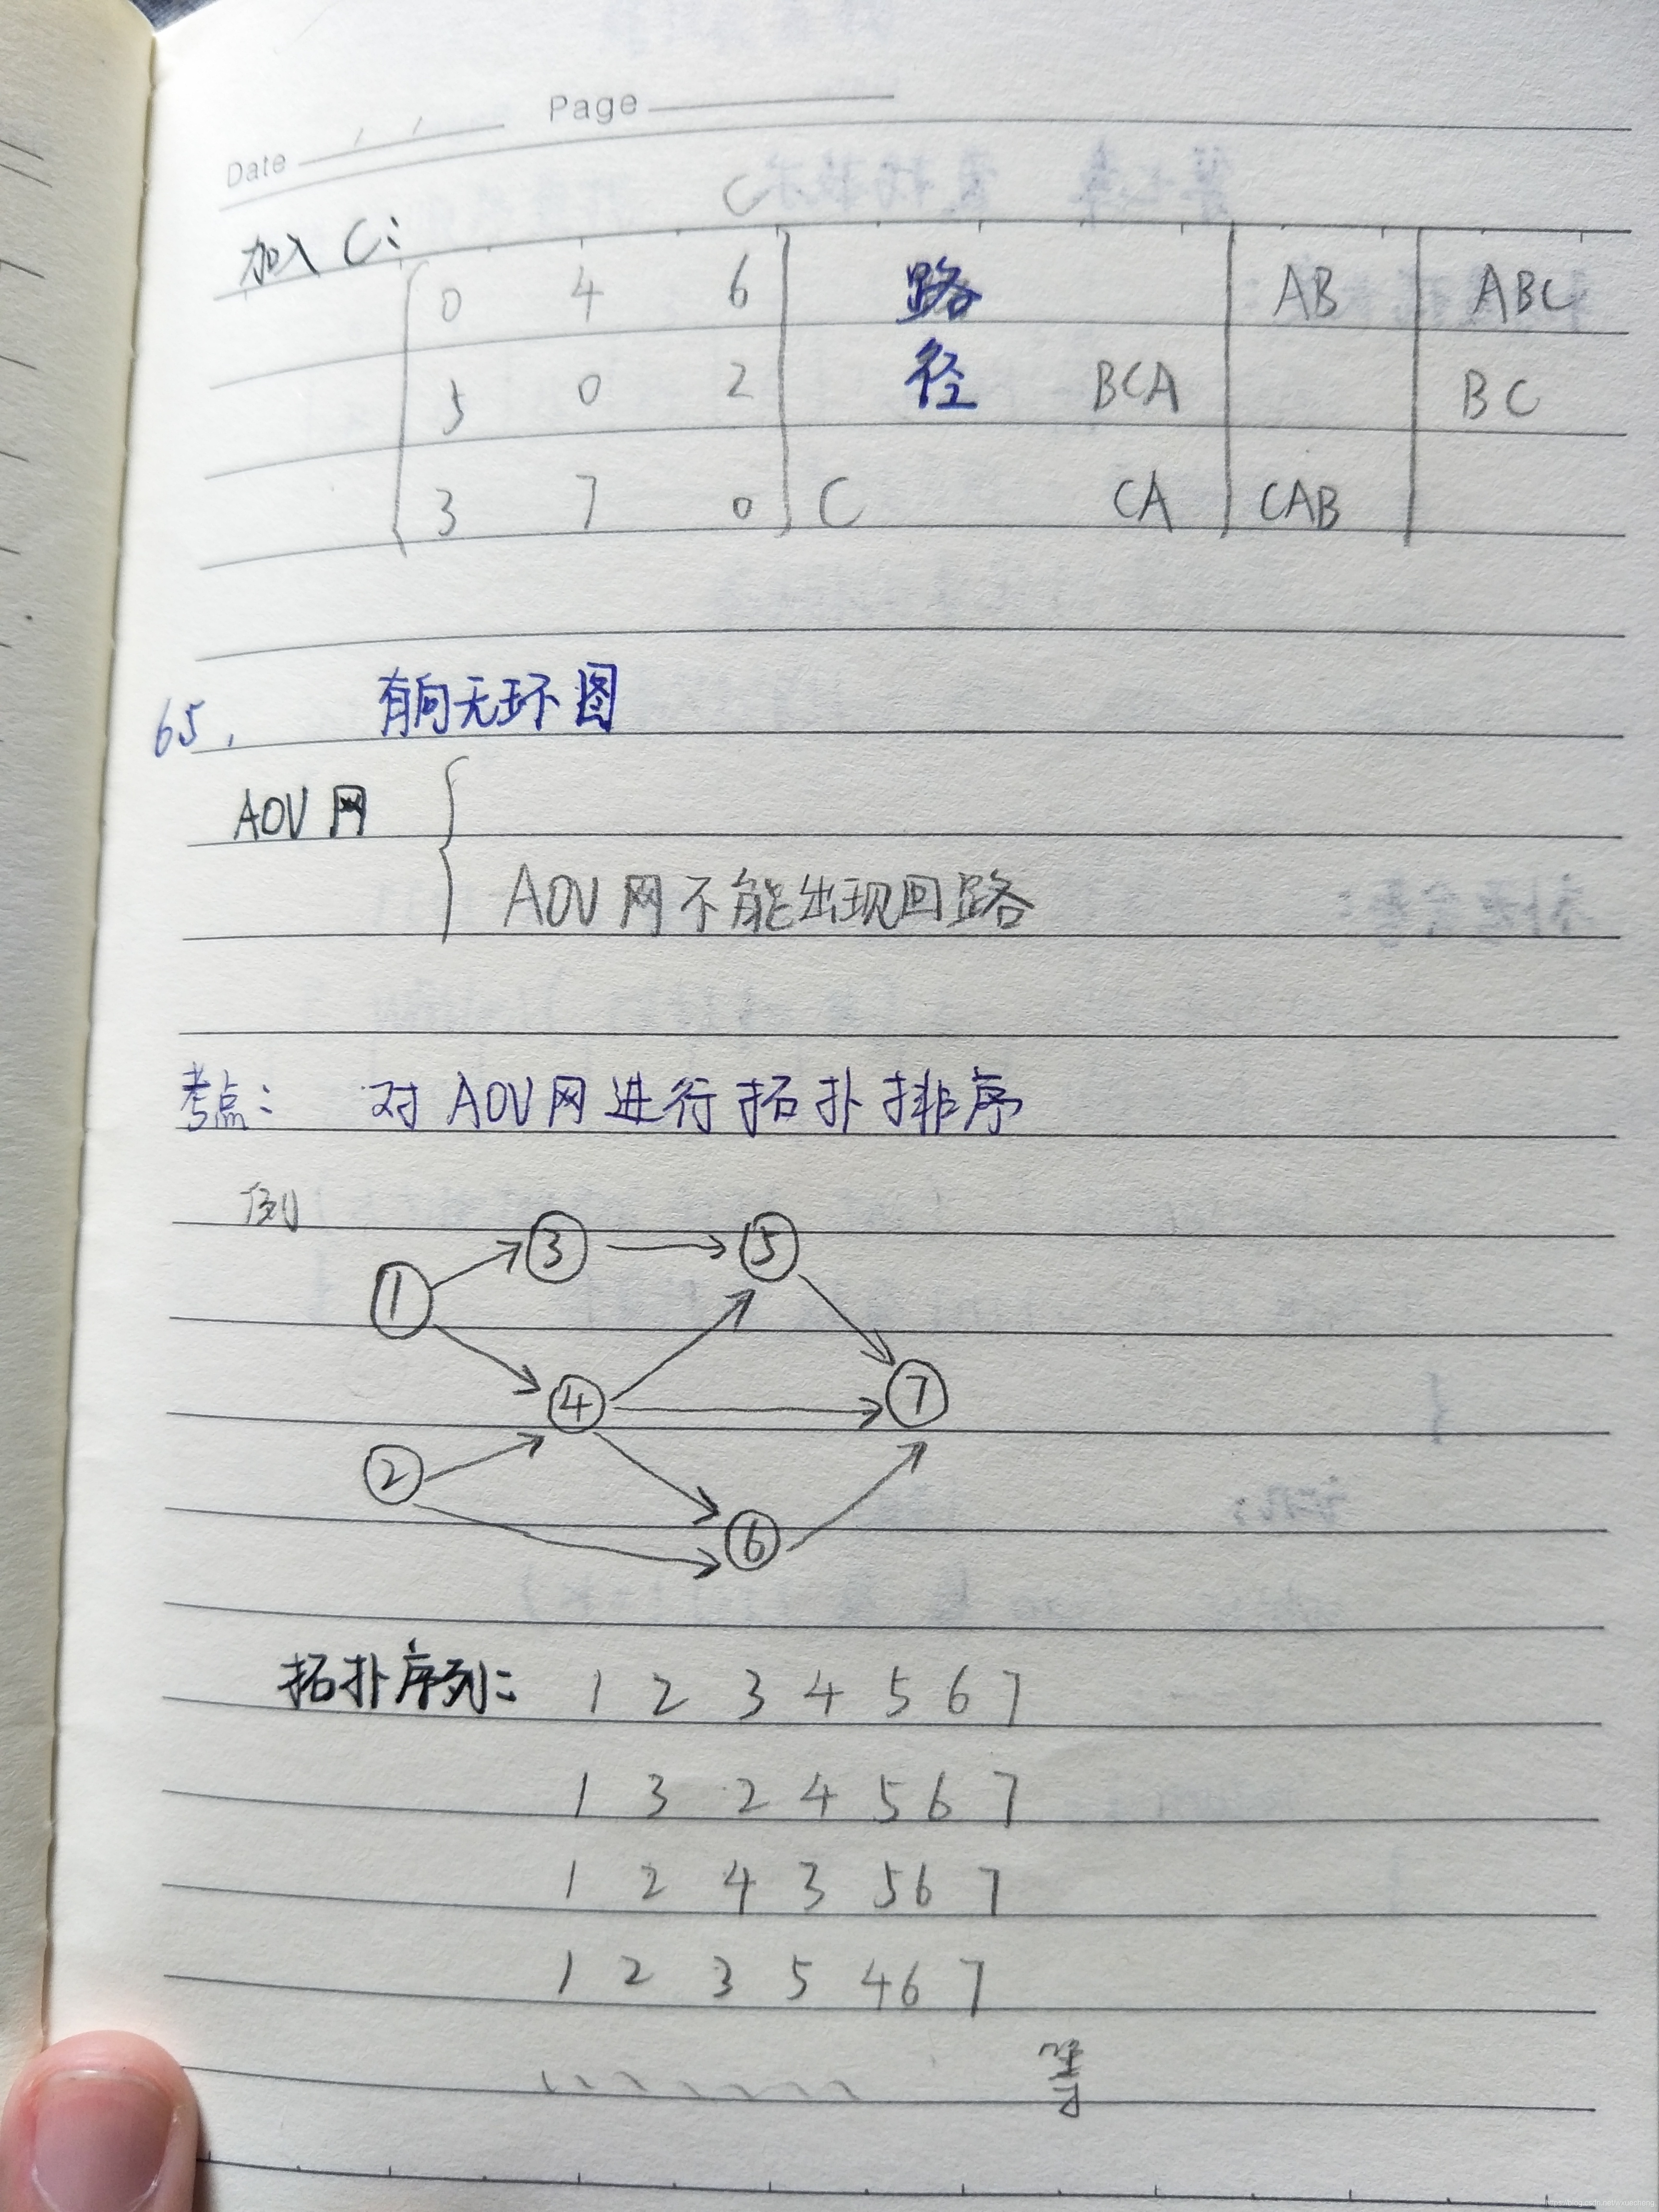 Date / / Page
C
加入 C:
0 4 6 路 AB ABC
5 0 2 径 BCA BC
3 7 0 C CA CAB
65. 有向无环图
AOV 网
AOV 网不能出现回路
考点: 对 AOV网进行拓扑排序
例
3 5
1
4 7
2
6
拓扑序列: 1 2 3 4 5 6 7
1 3 2 4 5 6 7
1 2 4 3 5 6 7
1 2 3 5 4 6 7
等